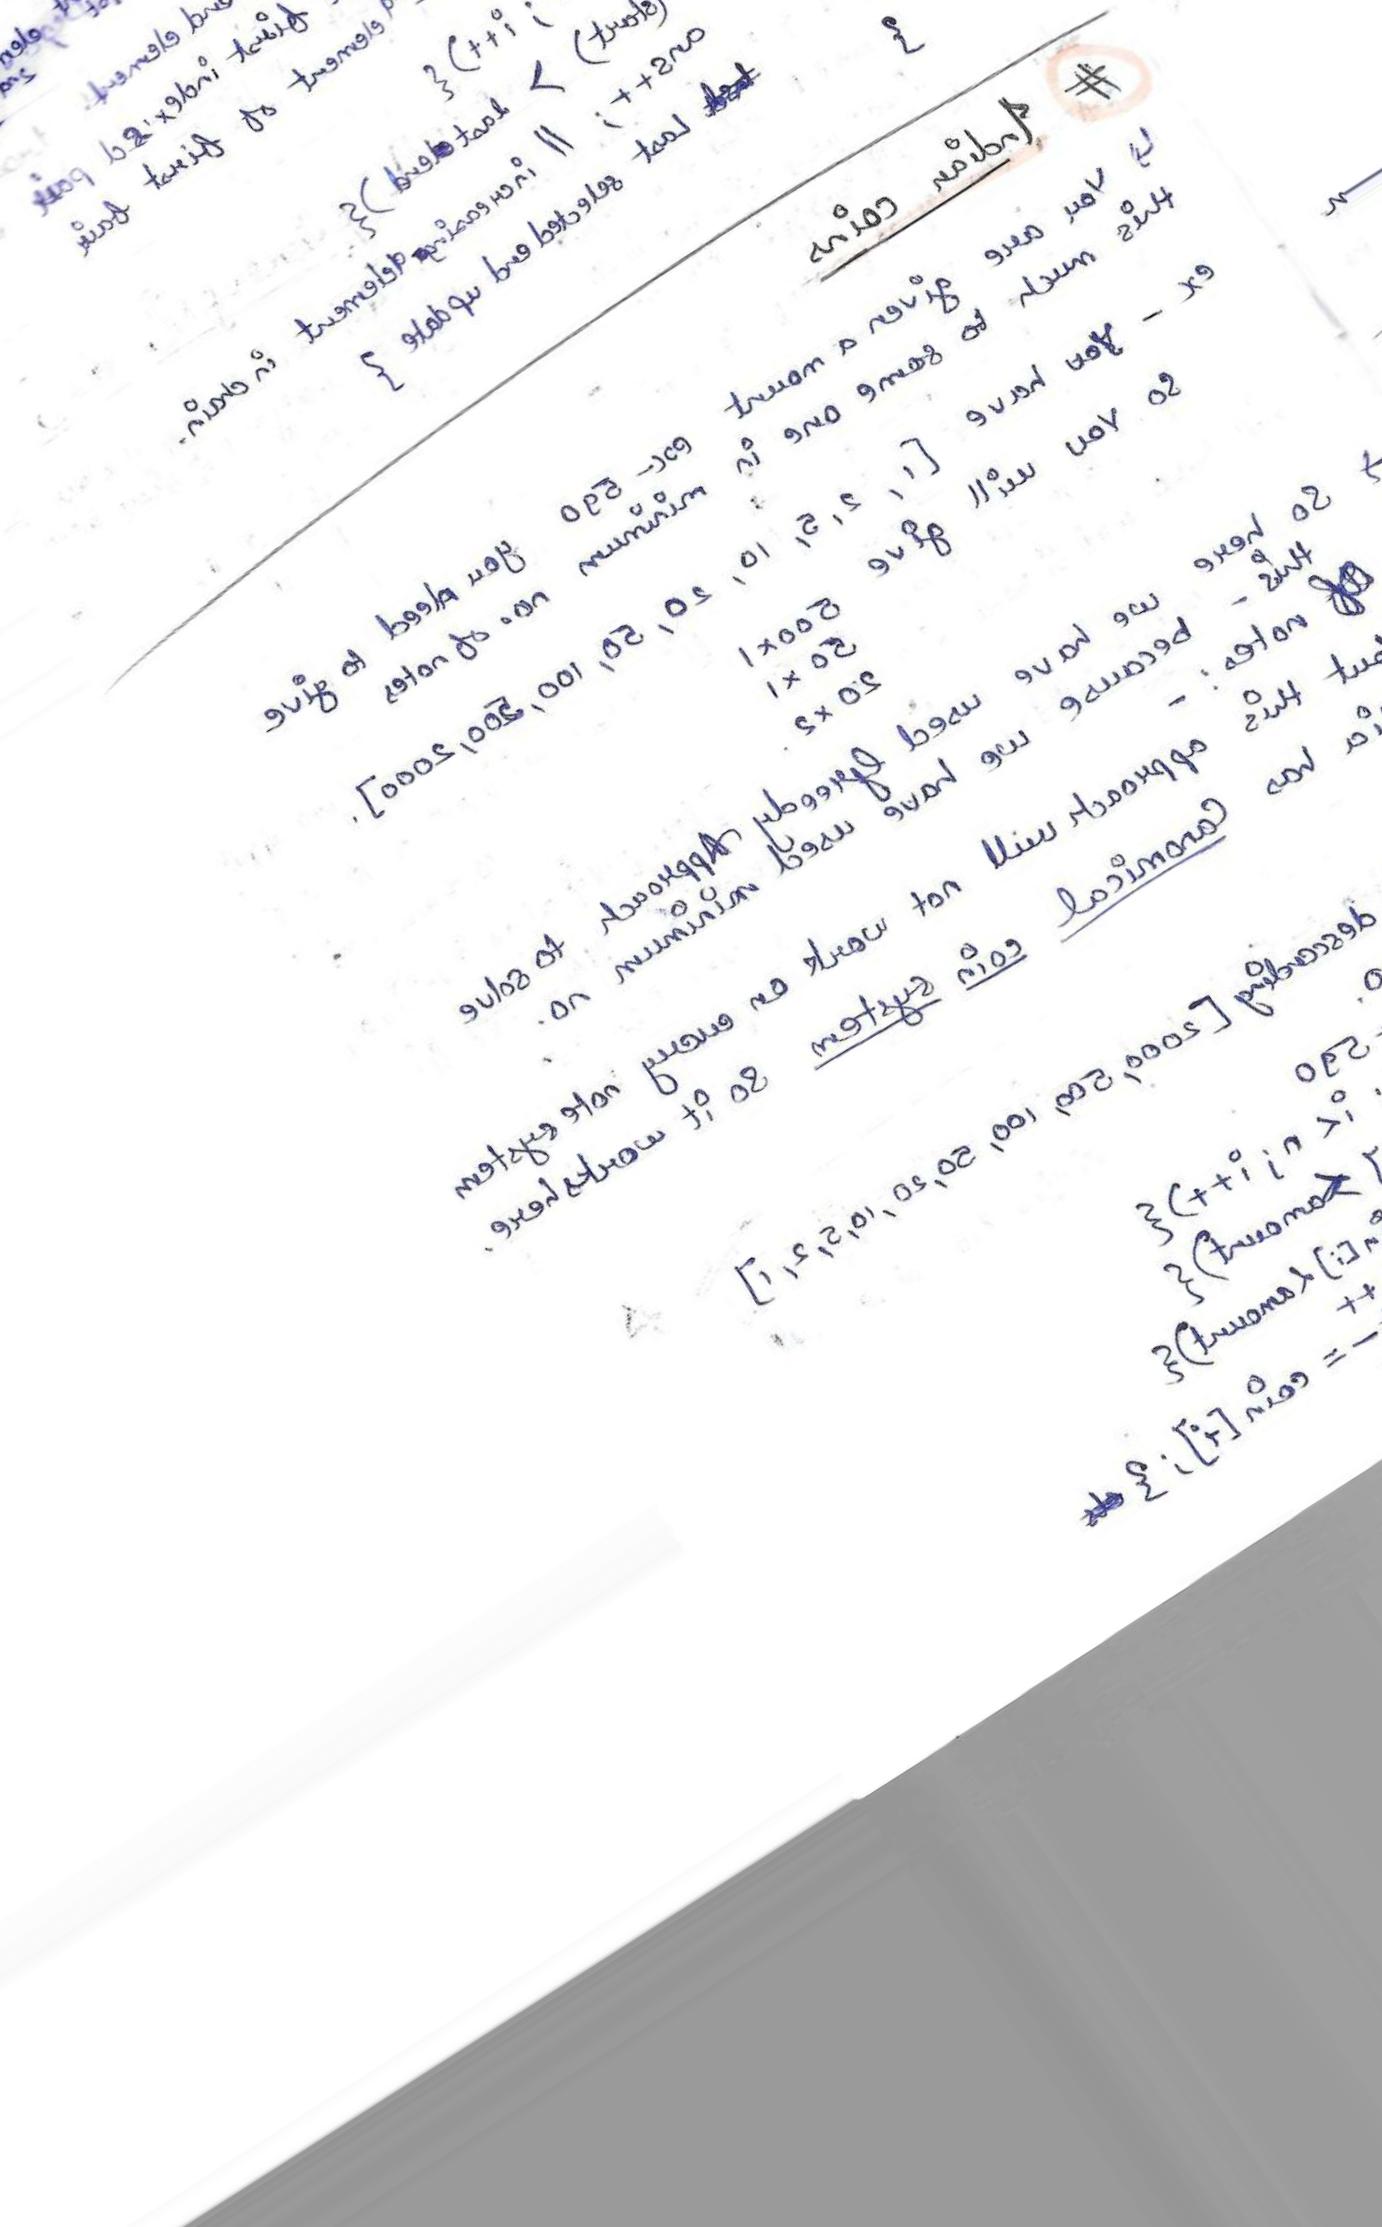 element
2nd
end element.
first index. 2nd pair
element of first pair
; i++) {
(start) > lastend) {
ans++; // increasing element in chain.
last selected end update }
}
# Indian coins
you are given a mount ex- 590 you need to give
this much to some one in minimum no. of notes
ex - you have [1, 2, 5, 10, 20, 50, 100, 500, 2000].
so you will give 500x1
50 x1
20 x2
so here we have used Greedy Approach to solve
this - because we have used minimum no.
of notes: -
but this approach will not work on every note system
has Canonical coin system so it works here.
descending [2000, 500, 100, 50, 20, 10, 5, 2, 1]
590
i< n; i++) {
< amount) {
[i] < amount) {
++
- = coin [i]; }